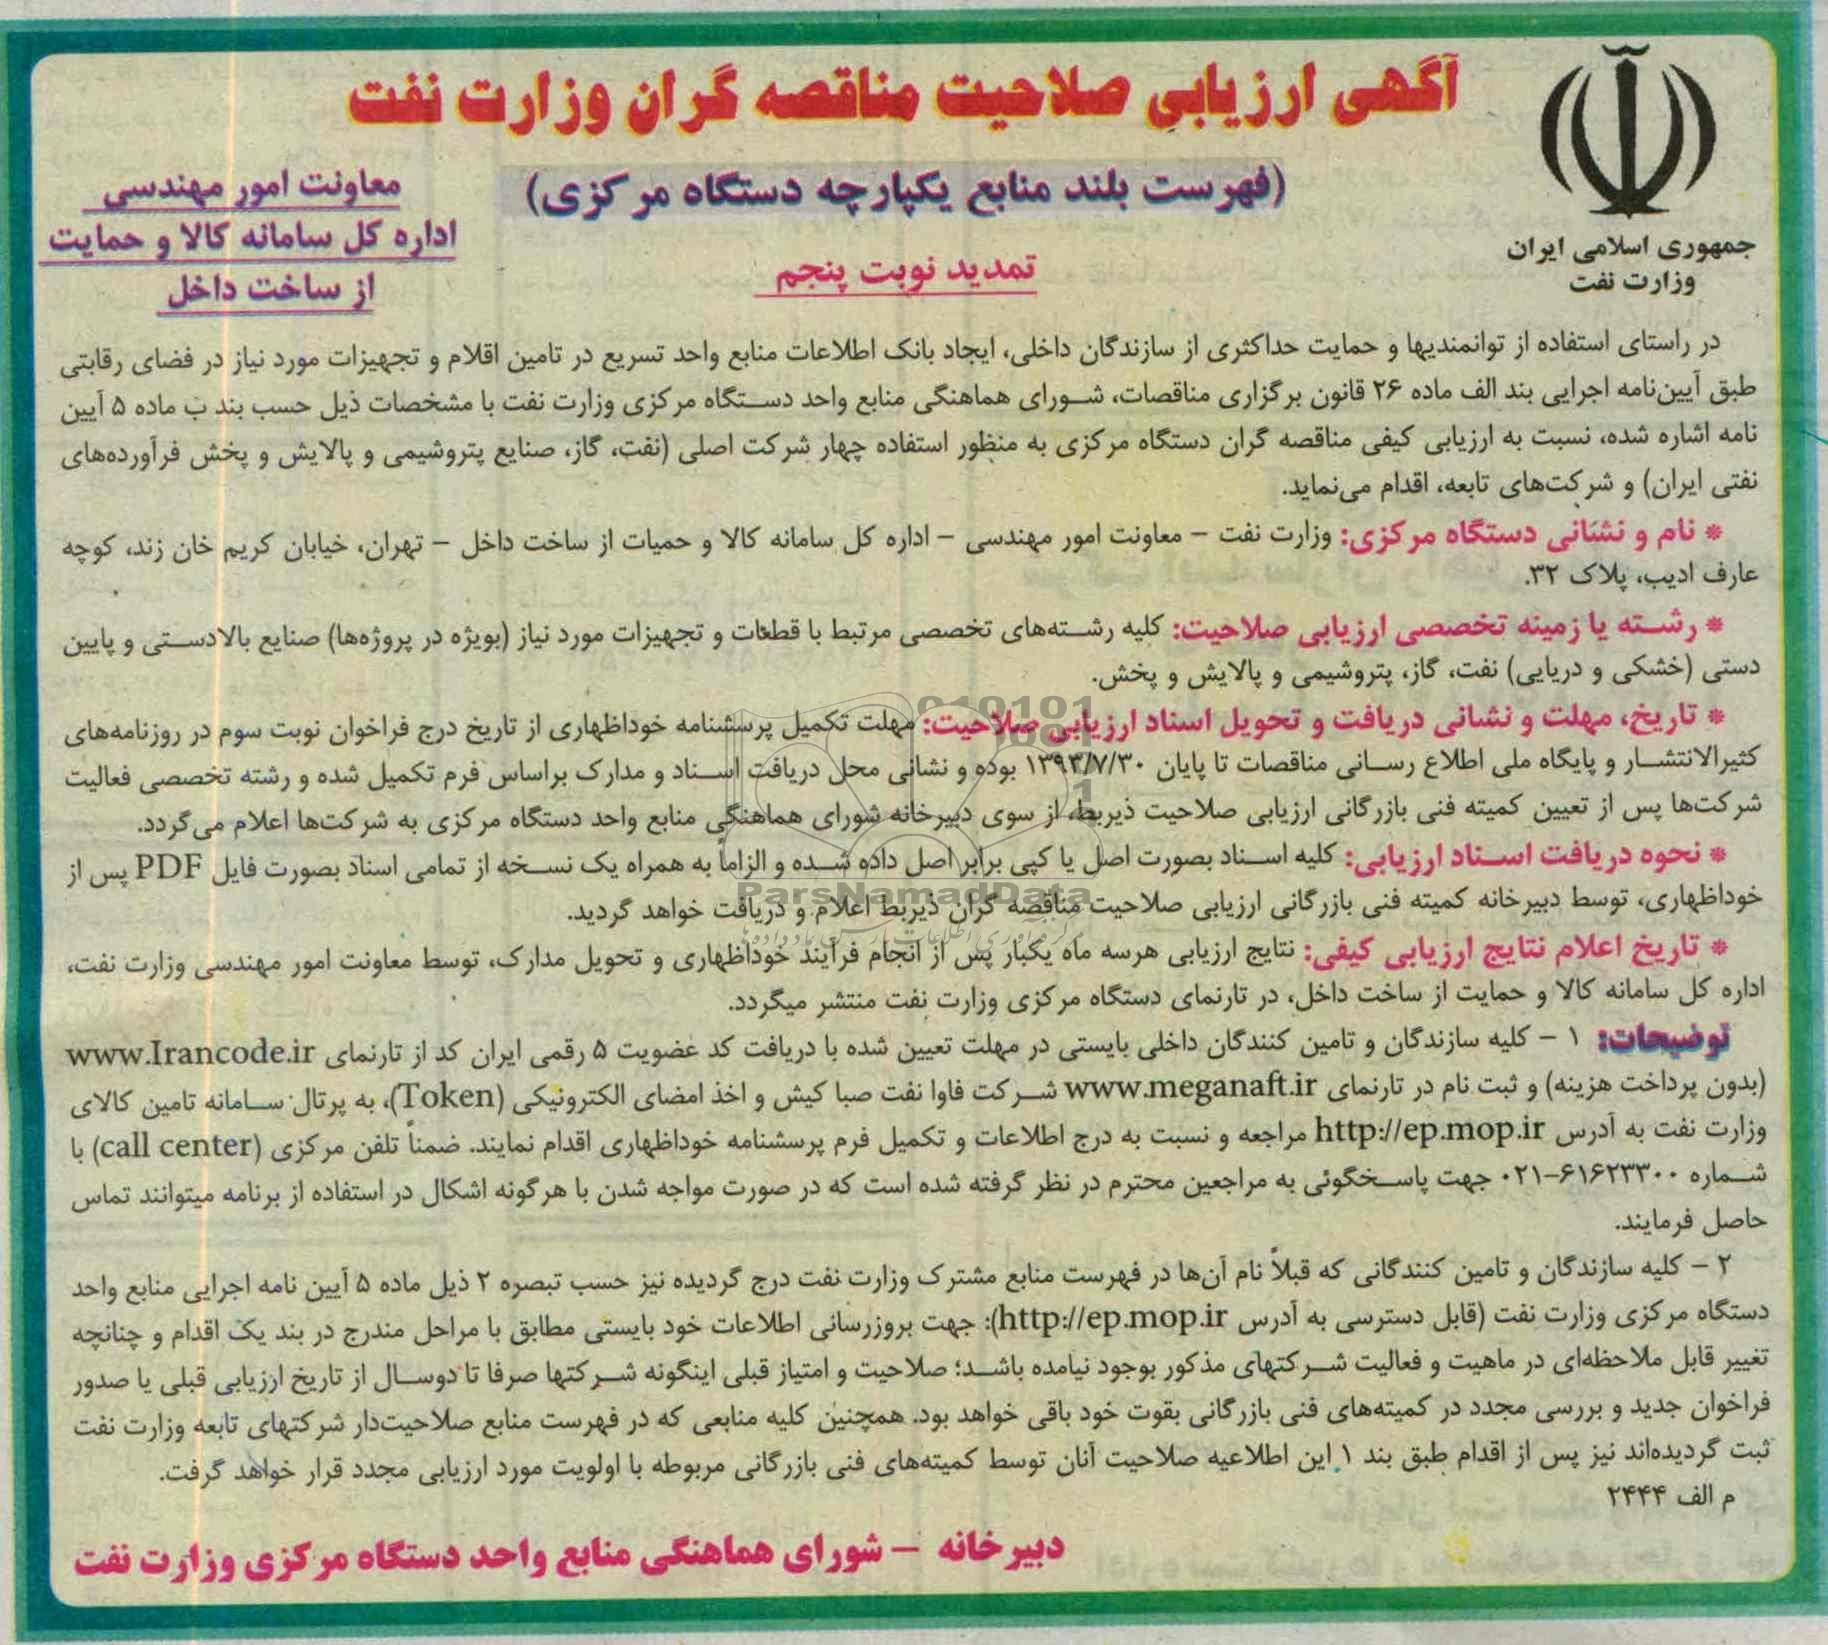 آگهی ارزیابی صلاحیت مناقصه گران وزارت نفت
(فهرست بلند منابع یکپارچه دستگاه مرکزی)
تمدید نوبت پنجم
جمهوری اسلامی ایران
وزارت نفت
معاونت امور مهندسی
اداره کل سامانه کالا و حمایت
از ساخت داخل
در راستای استفاده از توانمندیها و حمایت حداکثری از سازندگان داخلی، ایجاد بانک اطلاعات منابع واحد تسریع در تامین اقلام و تجهیزات مورد نیاز در فضای رقابتی
طبق آیین‌نامه اجرایی بند الف ماده ۲۶ قانون برگزاری مناقصات، شورای هماهنگی منابع واحد دستگاه مرکزی وزارت نفت با مشخصات ذیل حسب بند ب ماده ۵ آیین
نامه اشاره شده، نسبت به ارزیابی کیفی مناقصه گران دستگاه مرکزی به منظور استفاده چهار شرکت اصلی (نفت، گاز، صنایع پتروشیمی و پالایش و پخش فرآورده‌های
نفتی ایران) و شرکت‌های تابعه، اقدام می‌نماید.
* نام و نشانی دستگاه مرکزی: وزارت نفت – معاونت امور مهندسی – اداره کل سامانه کالا و حمیات از ساخت داخل – تهران، خیابان کریم خان زند، کوچه
عارف ادیب، پلاک ۳۲.
* رشته یا زمینه تخصصی ارزیابی صلاحیت: کلیه رشته‌های تخصصی مرتبط با قطعات و تجهیزات مورد نیاز (بویژه در پروژه‌ها) صنایع بالادستی و پایین
دستی (خشکی و دریایی) نفت، گاز، پتروشیمی و پالایش و پخش.
* تاریخ، مهلت و نشانی دریافت و تحویل اسناد ارزیابی صلاحیت: مهلت تکمیل پرسشنامه خوداظهاری از تاریخ درج فراخوان نوبت سوم در روزنامه‌های
کثیرالانتشار و پایگاه ملی اطلاع رسانی مناقصات تا پایان ۱۳۹۳/۷/۳۰ بوده و نشانی محل دریافت اسناد و مدارک براساس فرم تکمیل شده و رشته تخصصی فعالیت
شرکت‌ها پس از تعیین کمیته فنی بازرگانی ارزیابی صلاحیت ذیربط، از سوی دبیرخانه شورای هماهنگی منابع واحد دستگاه مرکزی به شرکت‌ها اعلام می‌گردد.
* نحوه دریافت اسناد ارزیابی: کلیه اسناد بصورت اصل یا کپی برابر اصل داده شده و الزاماً به همراه یک نسخه از تمامی اسناد بصورت فایل PDF پس از
خوداظهاری، توسط دبیرخانه کمیته فنی بازرگانی ارزیابی صلاحیت مناقصه گران ذیربط اعلام و دریافت خواهد گردید.
* تاریخ اعلام نتایج ارزیابی کیفی: نتایج ارزیابی هرسه ماه یکبار پس از انجام فرآیند خوداظهاری و تحویل مدارک، توسط معاونت امور مهندسی وزارت نفت،
اداره کل سامانه کالا و حمایت از ساخت داخل، در تارنمای دستگاه مرکزی وزارت نفت منتشر میگردد.
توضیحات: ۱ – کلیه سازندگان و تامین کنندگان داخلی بایستی در مهلت تعیین شده با دریافت کد عضویت ۵ رقمی ایران کد از تارنمای www.Irancode.ir
(بدون پرداخت هزینه) و ثبت نام در تارنمای www.meganaft.ir شرکت فاوا نفت صبا کیش و اخذ امضای الکترونیکی (Token)، به پرتال سامانه تامین کالای
وزارت نفت به آدرس http://ep.mop.ir مراجعه و نسبت به درج اطلاعات و تکمیل فرم پرسشنامه خوداظهاری اقدام نمایند. ضمناً تلفن مرکزی (call center) با
شماره ۶۱۶۲۳۳۰۰-۰۲۱ جهت پاسخگوئی به مراجعین محترم در نظر گرفته شده است که در صورت مواجه شدن با هرگونه اشکال در استفاده از برنامه میتوانند تماس
حاصل فرمایند.
۲ – کلیه سازندگان و تامین کنندگانی که قبلاً نام آن‌ها در فهرست منابع مشترک وزارت نفت درج گردیده نیز حسب تبصره ۲ ذیل ماده ۵ آیین نامه اجرایی منابع واحد
دستگاه مرکزی وزارت نفت (قابل دسترسی به آدرس http://ep.mop.ir): جهت بروزرسانی اطلاعات خود بایستی مطابق با مراحل مندرج در بند یک اقدام و چنانچه
تغییر قابل ملاحظه‌ای در ماهیت و فعالیت شرکتهای مذکور بوجود نیامده باشد؛ صلاحیت و امتیاز قبلی اینگونه شرکتها صرفا تا دوسال از تاریخ ارزیابی قبلی یا صدور
فراخوان جدید و بررسی مجدد در کمیته‌های فنی بازرگانی بقوت خود باقی خواهد بود. همچنین کلیه منابعی که در فهرست منابع صلاحیت‌دار شرکتهای تابعه وزارت نفت
ثبت گردیده‌اند نیز پس از اقدام طبق بند ۱ این اطلاعیه صلاحیت آنان توسط کمیته‌های فنی بازرگانی مربوطه با اولویت مورد ارزیابی مجدد قرار خواهد گرفت.
م الف ۲۴۴۴
دبیرخانه – شورای هماهنگی منابع واحد دستگاه مرکزی وزارت نفت
ParsNamadData